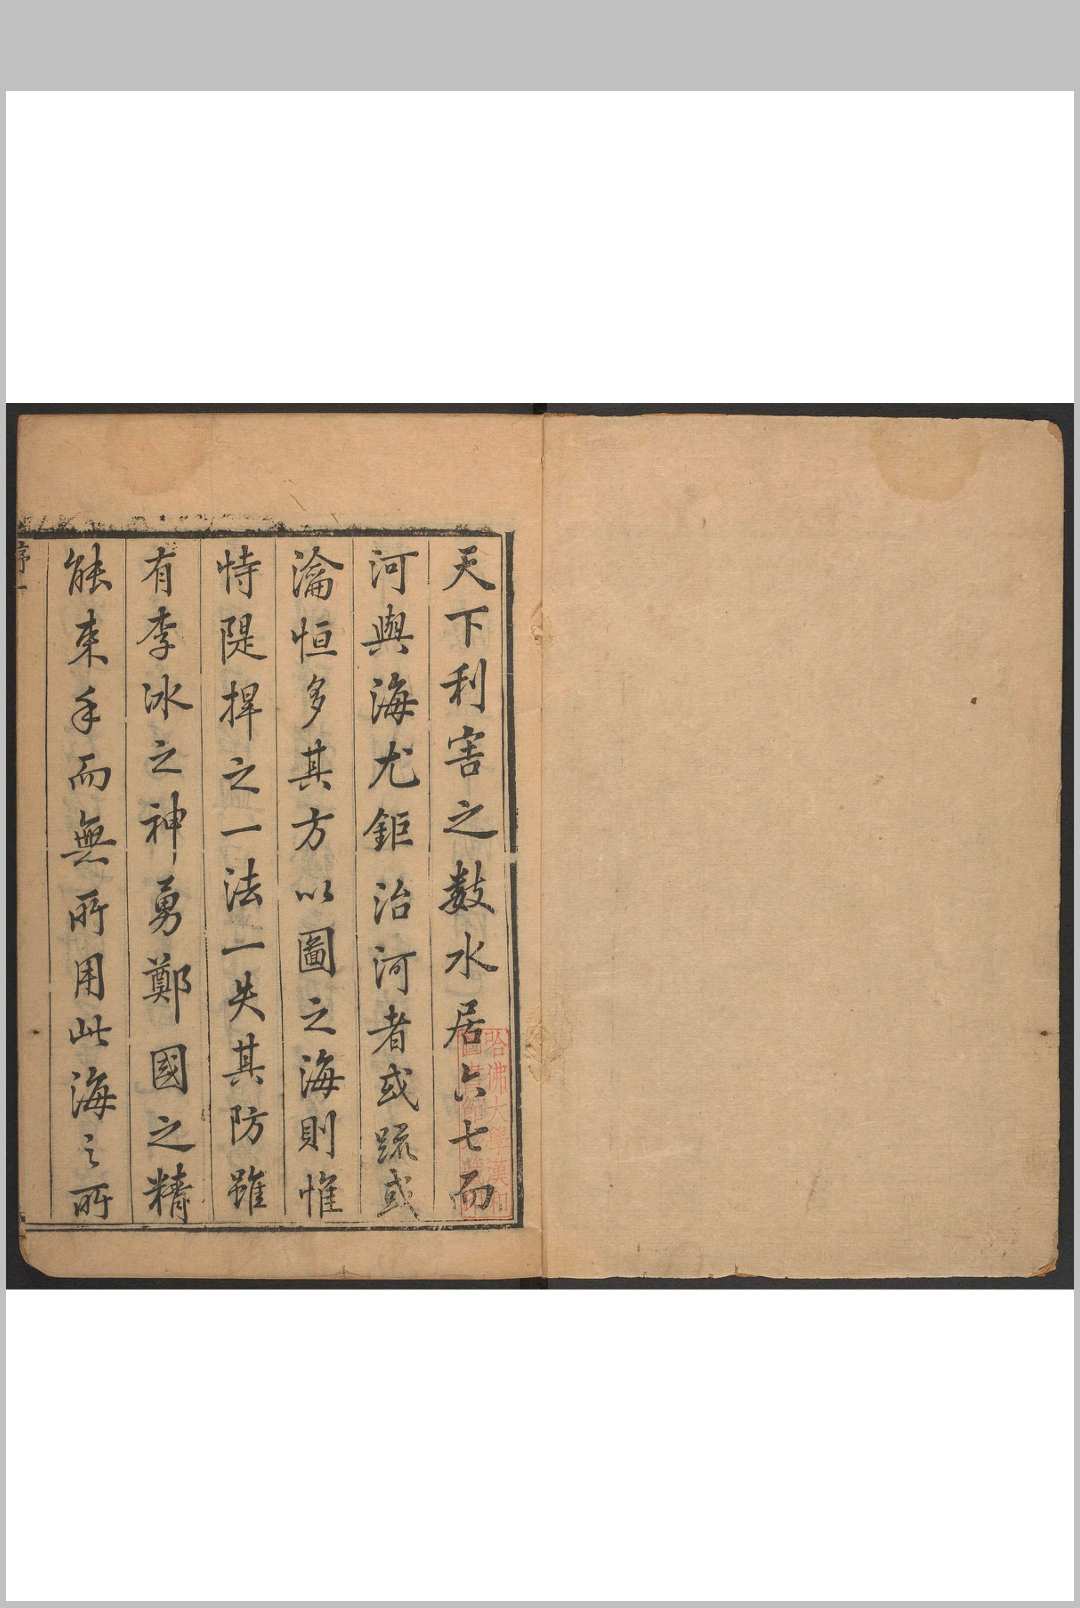 天下利害之數水居六七而
河與海尤鉅治河者或疏或
瀹恒多其方以圖之海則惟
恃隄捍之一法一失其防雖
有李冰之神勇鄭國之精
能束手而無所用此海之所
序一
哈佛大學漢和
圖書館